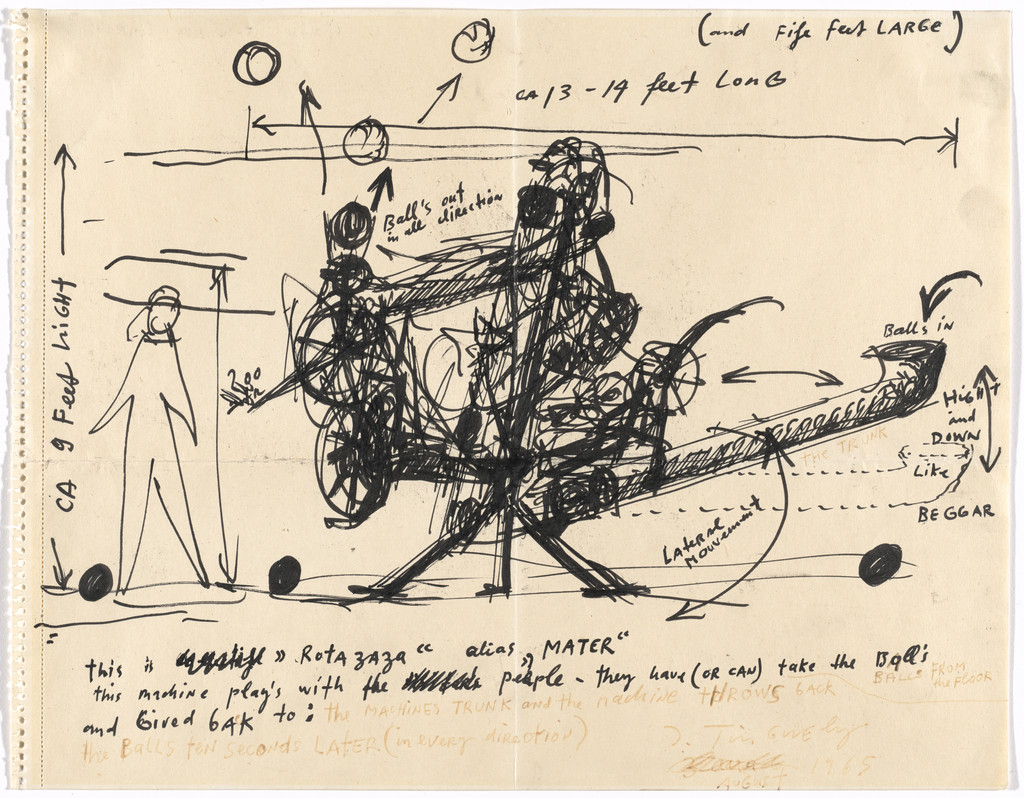 (and FiFe feet LARGE)
CA 13 - 14 feet LONG
CA 9 Feet hiGHT
Ball's out
in all direction
Balls in
HiGHT
and
DOWN
Like
BEGGAR
the TRUNK
LateRal
Mouvement
this is » RotazazA “ alias „ MATER “
this machine play's with the people - they have (OR CAN) take the Ball's
BALLS FROM
the FLOOR
and Gived bAK to : the MACHINES TRUNK and the machine THROWS back
the BALLS TEN SeCONDS LATER (in every direction)
J. Tinguely
1965
AUGUST